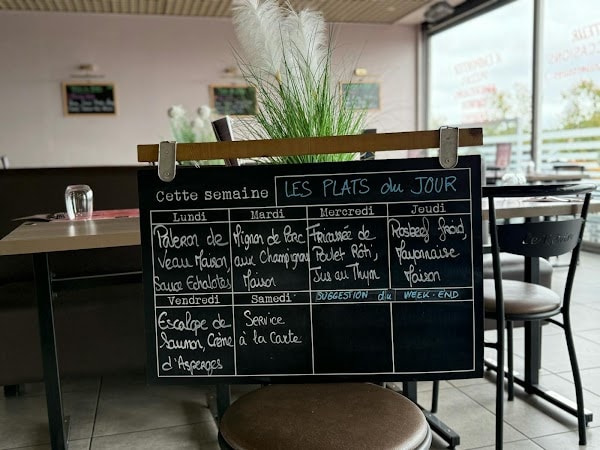 Cette semaine
LES PLATS du JOUR
Lundi
Mardi
Mercredi
Jeudi
Paleron de
Veau Maison,
Sauce Echalotes
Mignon de Porc
aux Champignons
Maison
Fricassée de
Poulet Rôti,
Jus au Thym
Rosbeef froid,
Mayonnaise
Maison
Vendredi
Samedi
SUGGESTION du
WEEK-END
Escalope de
Saumon, Crème
d'Asperges
Service
à la Carte